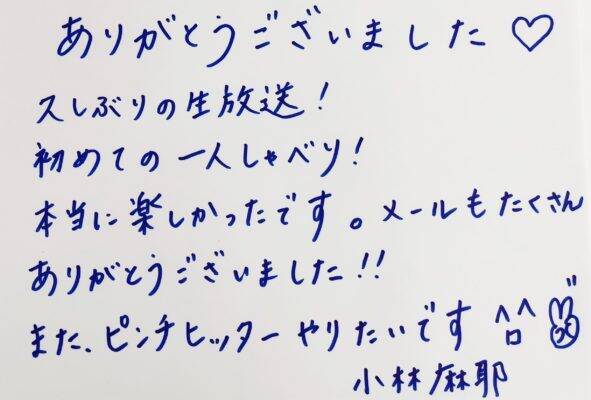 ありがとうございました♡
久しぶりの生放送!
初めての一人しゃべり!
本当に楽しかったです。メールもたくさん
ありがとうございました!!
また、ピンチヒッターやりたいです ^ロ^
小林麻耶